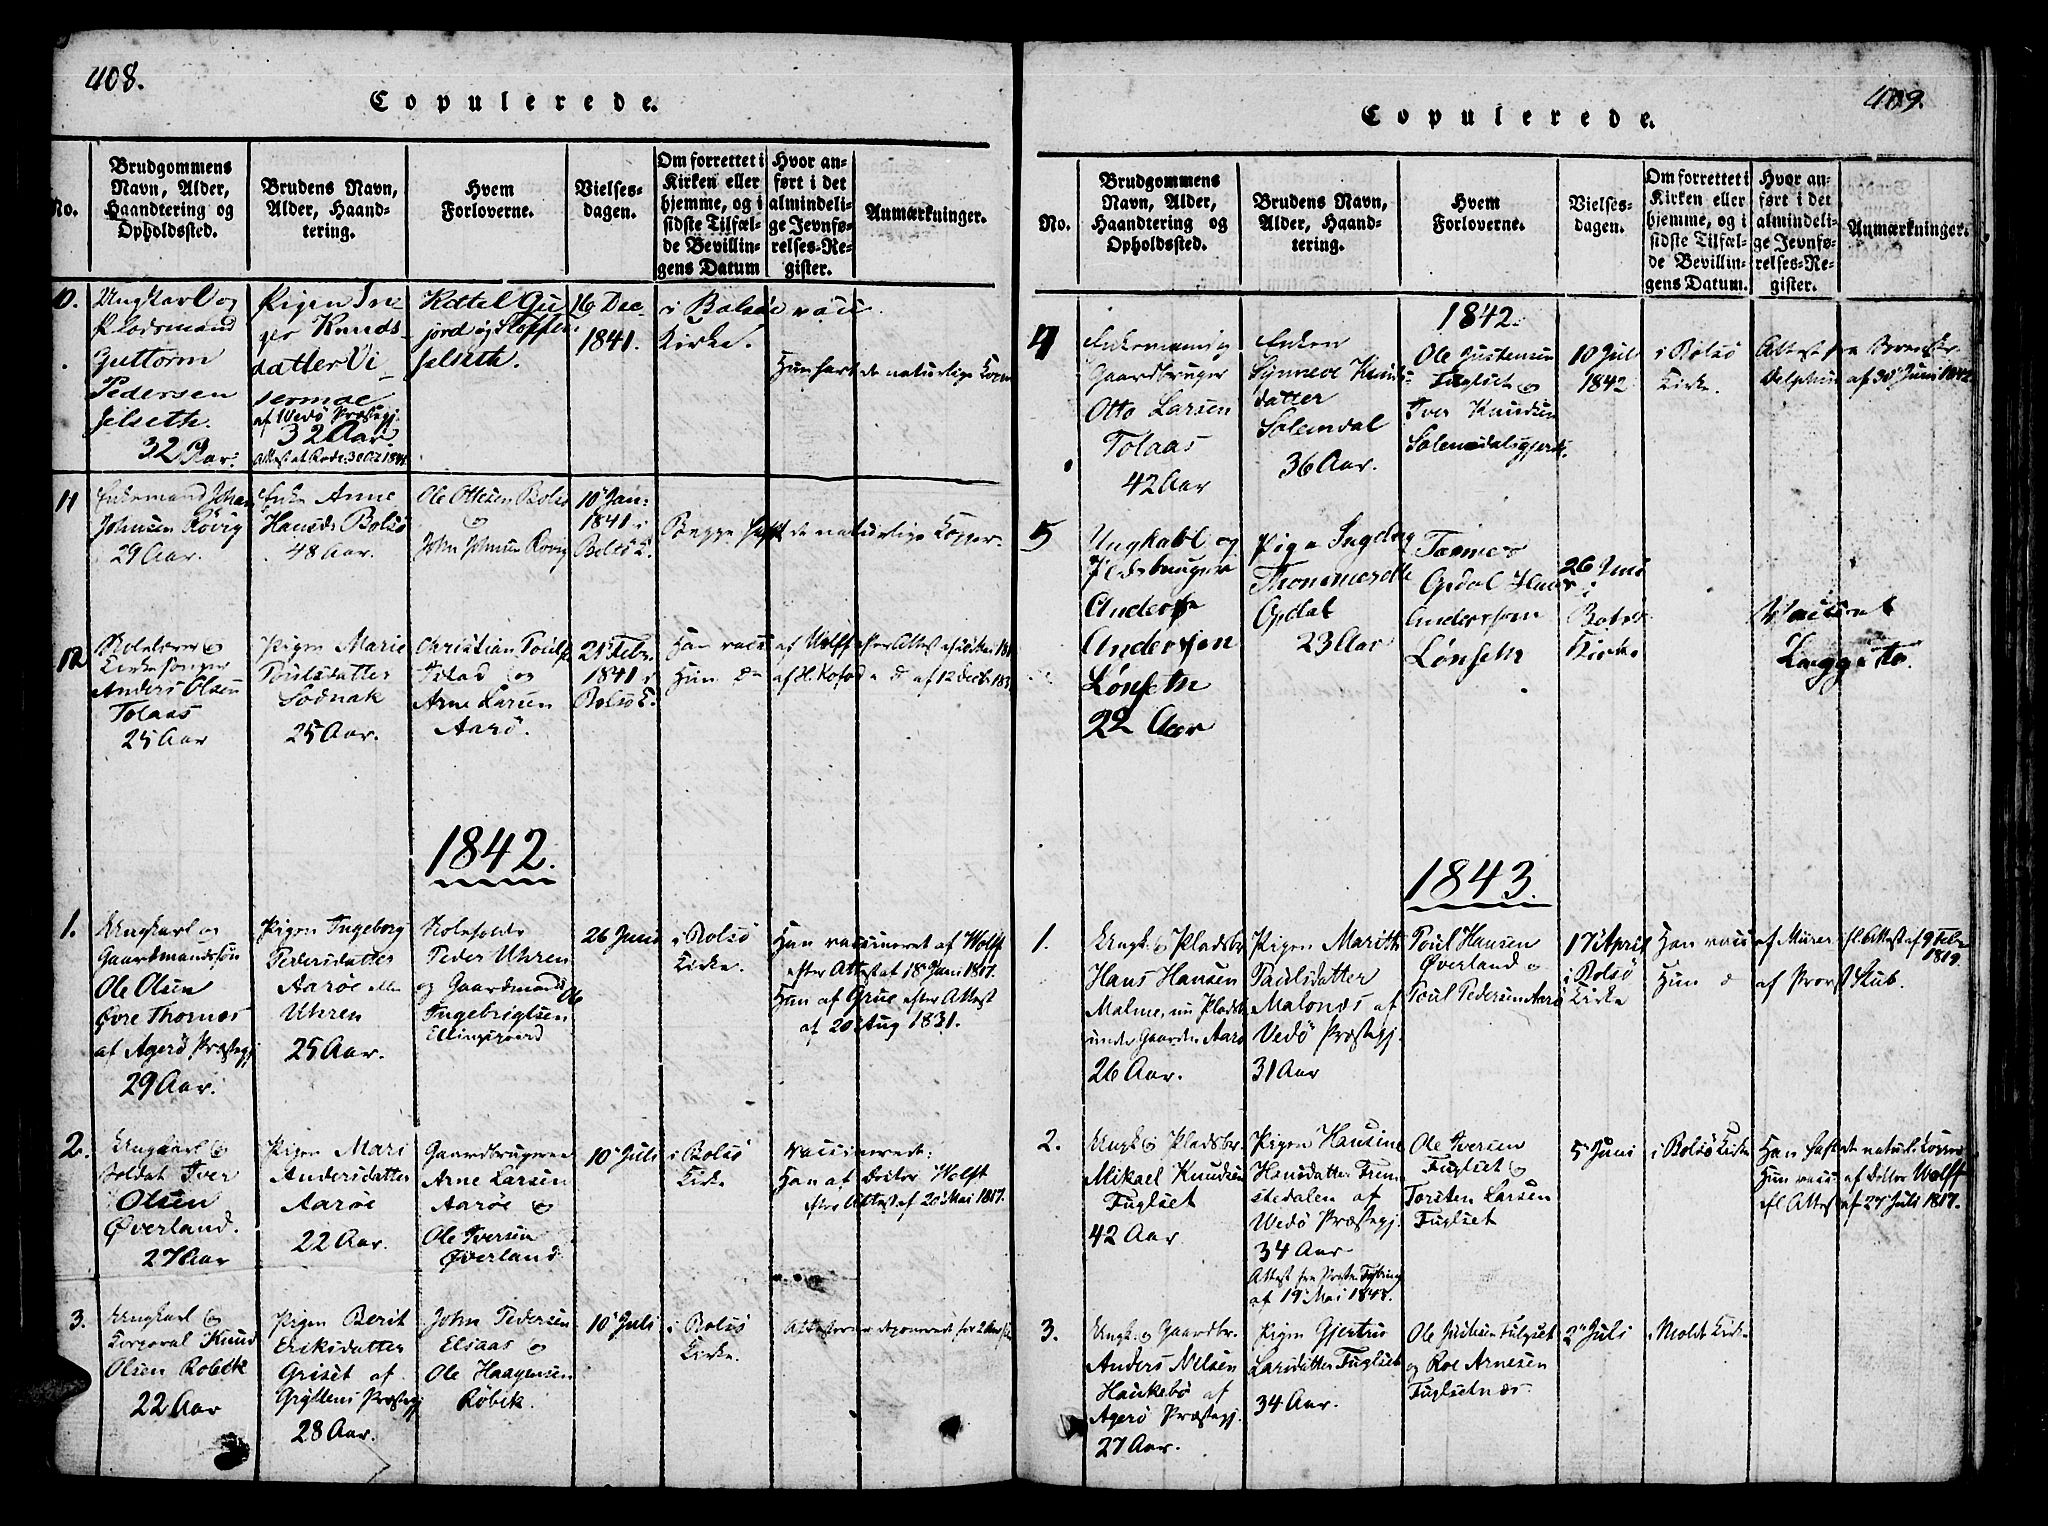 408.
Copulerede.
No.
Brudgommens
Navn, Alder,
Haandtering og
Opholdssted.
Brudens Navn,
Alder, Haand-
tering.
Hvem
Forloverne.
Vielses-
dagen.
Om forrettet i
Kirken eller
hjemme, og i
sidste Tilfæl-
de Bevillin-
gens Datum
Hvor an-
ført i det
almindeli-
ge Jevnfø-
relses-Re-
gister.
Anmærkninger.
10.
Ungkarl og
Pladsmand
Guttorm
Pedersen
Jelseth.
32 Aar.
Pigen In-
ger Knuds-
datter Vi-
sermoe
af Vedø Præstegj.
32 Aar.
Kettel Gu
jord og Stoffen
Jelseth.
16 Dec
1841.
i Bolsøe
Kirke.
vacc.
Hun havt de naturlige Kopper
11
Enkemand Johan
Johnsen Røvig
29 Aar.
Enke Anne
Hansdr Bolsø
48 Aar.
Ole Ottesen Bolsø
og
John Johnsen Røvig
10 Jan:
1841 i
Bolsø K.
Begge havt de naturlige Kopper.
12
og
Kirkesanger
Anders Olsen
Tolaas
25 Aar
Pigen Marie
Poulsdatter
Sødnak
25 Aar.
Christian Poulsen
Istad og
Arne Larsen
Aarø.
21 Febr.
1841 i
Bolsø K.
Han vacc af Wolff efter Attest af
Hun do af H. Kofod do af 12 Decbr
1842.
1.
Ungkarl og
Gaardmandssøn
Ole Olsen
Øvre Thornes
af Agerø Præstegj
29 Aar.
Pigen Ingeborg
Pedersdatter
Aarøe eller
Uhren
25 Aar.
Peder Uhren
og Gaardmand Ole
Ingebrigtsen
Ellingsgaard
26 Juni
i Bolsø
Kirke.
Han vaccineret af Wolff
efter Attest af 18 Juni 1817.
Hun af Grue efter Attest
af 20 Aug 1831.
2.
Ungkarl og
Soldat Iver
Olsen
Øverland.
27 Aar
Pigen Mari
Andersdatter
Aarøe
22 Aar.
Gaardbrugerne
Arne Larsen
Aarøe og
Ole Iversen
Øverland
10 Juli
i Bolsø
Kirke
vaccinerede:
Han af Doctor Wolff
efter Attest af 20 Mai 1817.
3.
Ungkarl og
Corporal Knud
Olsen Røbek
22 Aar
Pigen Berit
Eriksdatter
Griset af
Gryttens Præstegj
28 Aar.
John Pedersen
Elsaas og
Ole Haagensen
Røbek.
10 Juli
i Bolsø
Kirke.
Attester deponerede for
409.
Copulerede.
No.
Brudgommens
Navn, Alder,
Haandtering og
Opholdssted.
Brudens Navn,
Alder, Haand-
tering.
Hvem
Forloverne.
Vielses-
dagen.
Om forrettet i
Kirken eller
hjemme, og i
sidste Tilfæl-
de Bevillin-
gens Datum.
Hvor an-
ført i det
almindeli-
ge Jevnfø-
relses-Re-
gister.
Anmærkninger.
1842.
4
Enkemand og
Gaardbruger
Otto Larsen
Tolaas
42 Aar
Enken
Synneve Knuds-
datter
Solemdal
36 Aar.
Ole Justensen
Fuglset og
Iver Knudsen
Solemdalsgjerde.
10 Juli
1842
i Bolsø
Kirke.
Attest fra
af 30 Juni 1842
5
Ungkarl og
Pladsbruger
Anders
Andersen
Lønseth
22 Aar
Pige Ingeborg
Opdal
23 Aar
Opdal
Anderssøn
Lønseth
26 Juni
i
Bolsø
Kirke
Vaccinat
Begge to.
1843.
1.
Ungk. og Pladsbr.
Hans Hansen
Malme, nu Pladsbr
under Gaarden Aarø
26 Aar.
Pigen Marith
Paulsdatter
Malonæs af
Vedø Præstegj.
31 Aar
Poul Hansen
Øverland og
Poul Pedersen Aarø
17 April
i Bolsø
Kirke
Han vacc af Mürer fl. Attest af 9 Febr
1819.
Hun do af Provst Stub.
2.
Ungk. og Pladsbr.
Mikael Knudsen
Fuglset
42 Aar
Pigen Hansine
Hansdatter
stedalen af
Wedø Præstegj.
34 Aar
Attest fra
af 19 Mai 1843.
Ole Iversen
Fuglset og
Torsten Larsen
Fuglset
5 Juni
i Bolsø Kirke
Han haft de naturl. Kopper
Hun vacc. af Doctor Wolff
fl. Attest af 27 Juli 1817.
3.
Ungk. og Gaardbr.
Anders Nielsen
Haukebø af
Agerø Præstegj.
27 Aar.
Pigen Gjertru
Larsdatter Fuglset
34 Aar.
Ole Justensen Fuglset
og Roe Arnesen
Fuglsetnæs.
2 Juli
i Molde Kirke